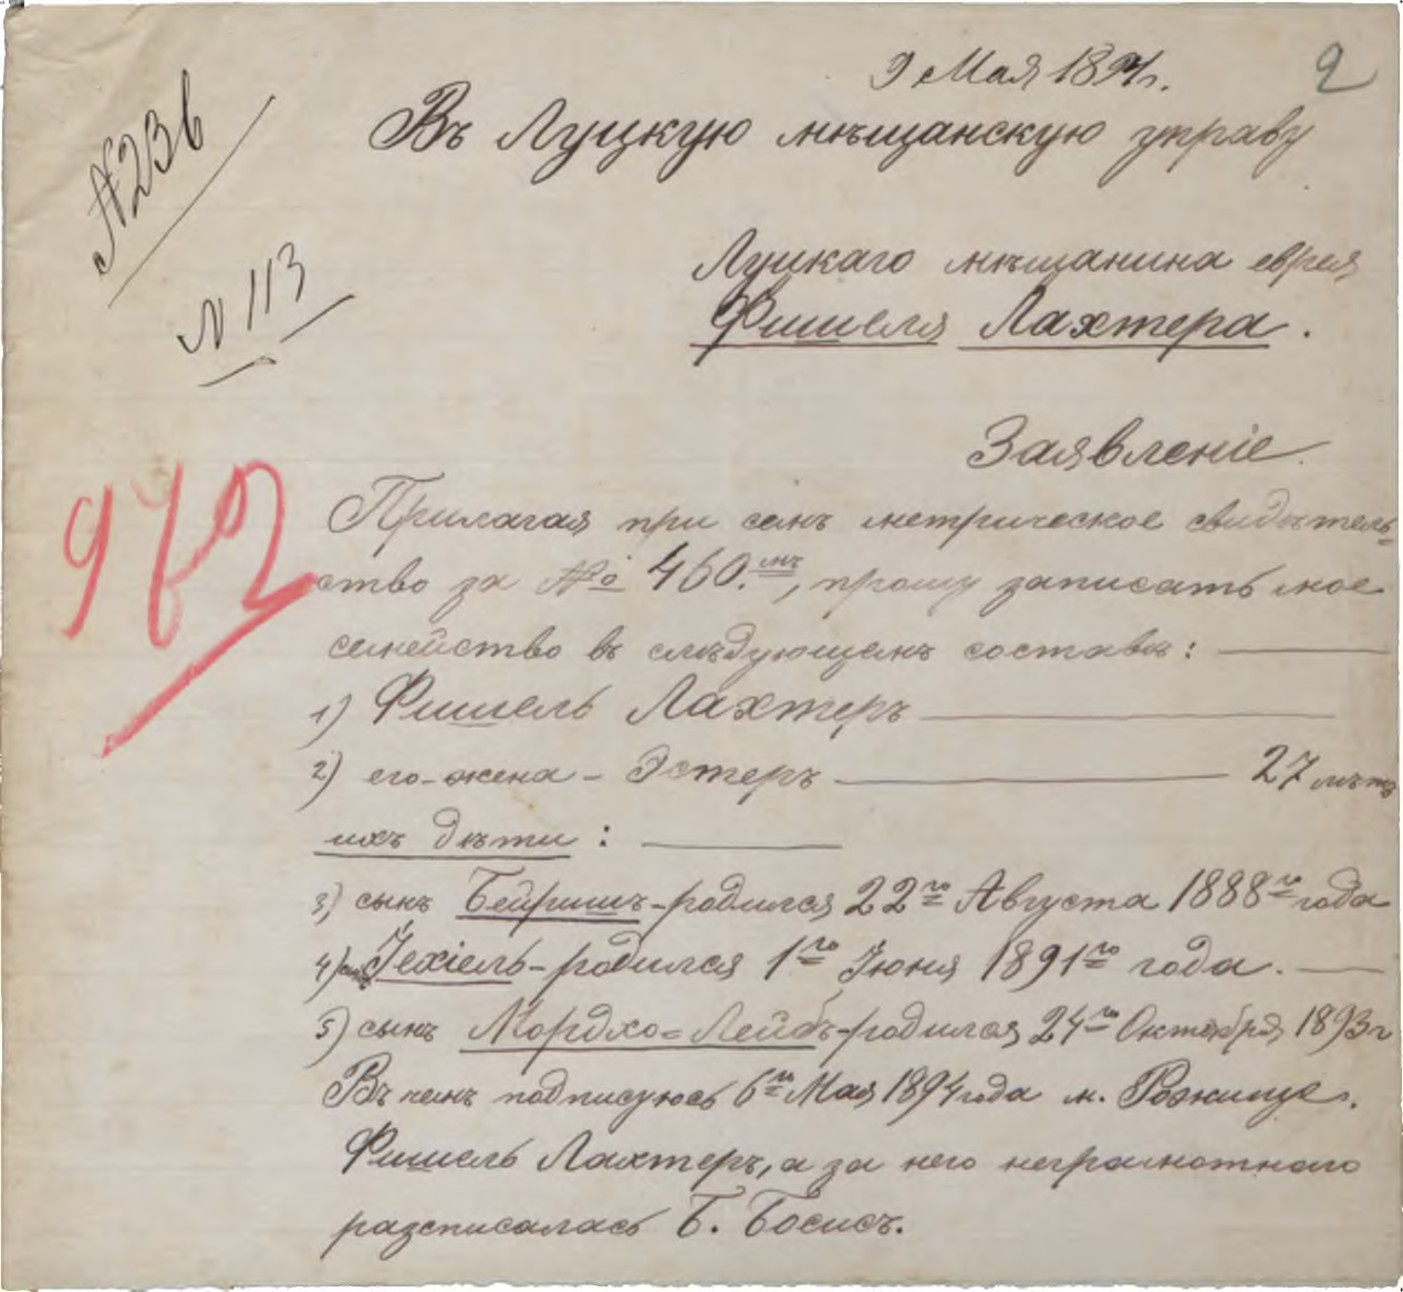 9 Мая 1894 г.
2
№ 236
№ 113
972
Въ Луцкую мѣщанскую управу
Луцкаго мѣщанина еврея
Фишеля Лахтера.
Заявленіе.
Прилагая при семъ метрическое свидѣтель=
ство за № 460.мъ, прошу записать мое
семейство въ слѣдующемъ составѣ:
1) Фишель Лахтеръ
2) его-жена - Эстеръ 27 лѣтъ
ихъ дѣти:
3) сынъ Бейришъ-родился 22го Августа 1888го года
4) сынъ Іехіель-родился 1го Іюня 1891го года.
5) сынъ Мордхо=Лейбъ-родился 24го Октября 1893 г
Въ чемъ подписуюсь 6го Мая 1894 года м. Рожище.
Фишель Лахтеръ, а за него неграмотнаго
разсписалась Б. Босисъ.